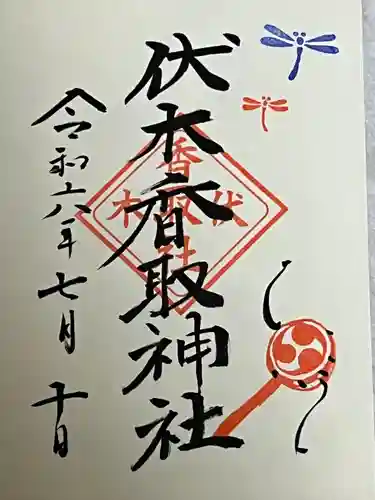 伏木香取神社
令和六年七月十日
香取
伏木
社